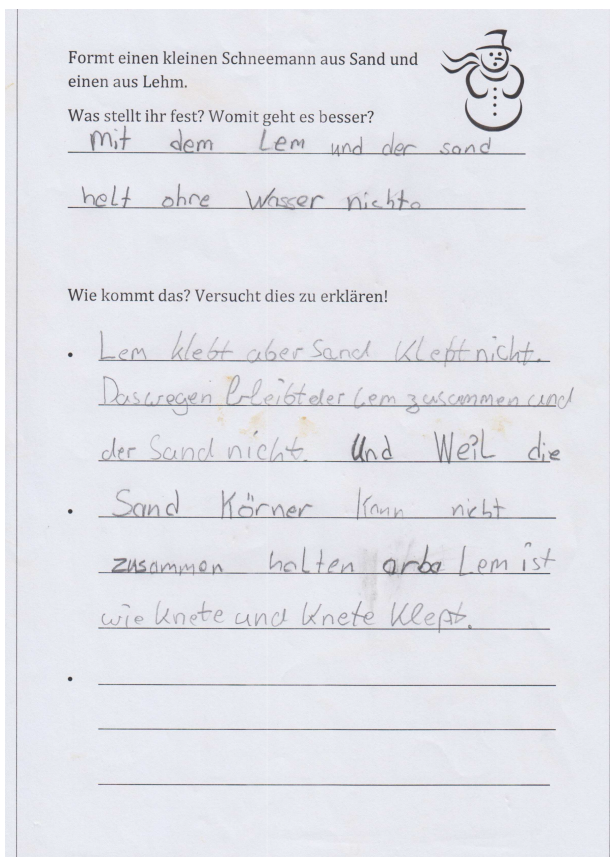 Formt einen kleinen Schneemann aus Sand und
einen aus Lehm.
Was stellt ihr fest? Womit geht es besser?
Mit dem Lem und der sand
helt ohre Wasser nicht.
Wie kommt das? Versucht dies zu erklären!
• Lem klebt aber Sand Kleptnicht.
Daswegen bleibt der Lem zusammen und
der Sand nicht. Und Weil die
• Sand Körner Kann nicht
zusammen halten arba Lem ist
wie Knete und Knete Klept.
•